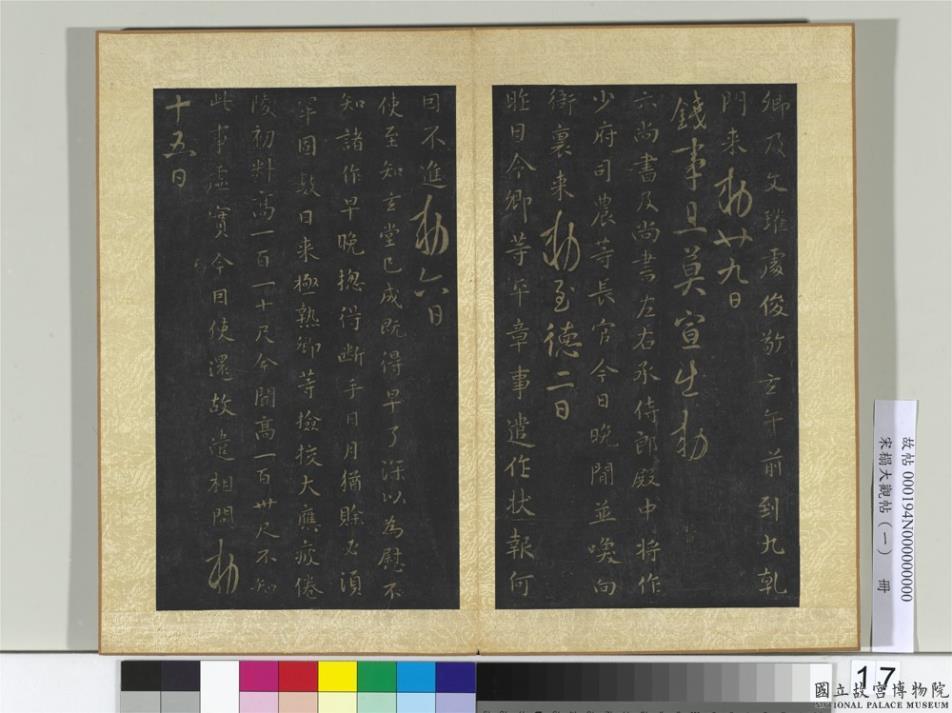 卿及文瓘處俊敬玄午前到九乹
門来勅廿九日
錢事且莫宣出勅
六尚書及尚書左右丞侍郎殿中將作
少府司農等長官今日晚間並喚向
衙裏来勅至德二日
昨日令卿等平章事遣作状報何
因不進勅六日
使至知玄堂已成既得早了深以為慰不
知諸作早晚揔得断手日月猶賒必須
牢固數日来極熱卿等撿挍大應疲倦
陵初料高一百一十尺今聞高一百卅尺不知
此事虚實今因使還故遣相問勅
十五日
故帖 000194N000000000
宋搨大觀帖（一） 冊
17
國立故宮博物院
NATIONAL PALACE MUSEUM